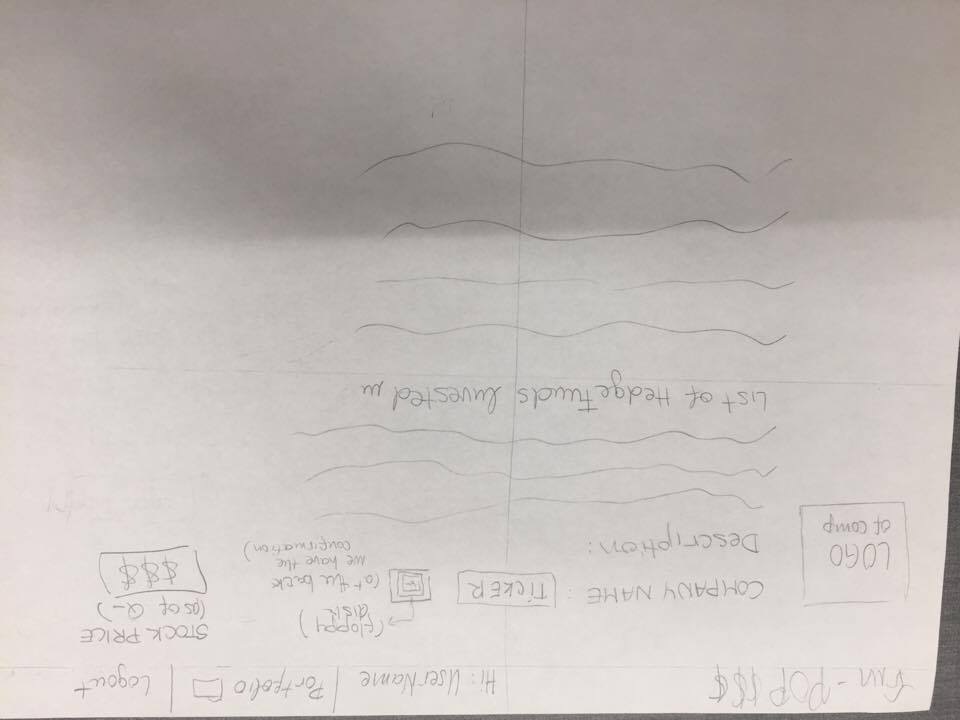 FIN-POP $$$ Hi: UserName | Portfolio | Logout
LOGO
of comp
COMPANY NAME: TICKER
(Floppy
DISK)
(at the back
we have the
confirmation)
STOCK PRICE
(as of Q-)
$$$
Description:
LIST of Hedge Funds Invested in